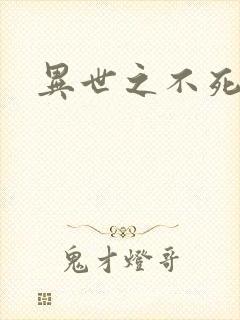 異世之不死
鬼才燈哥